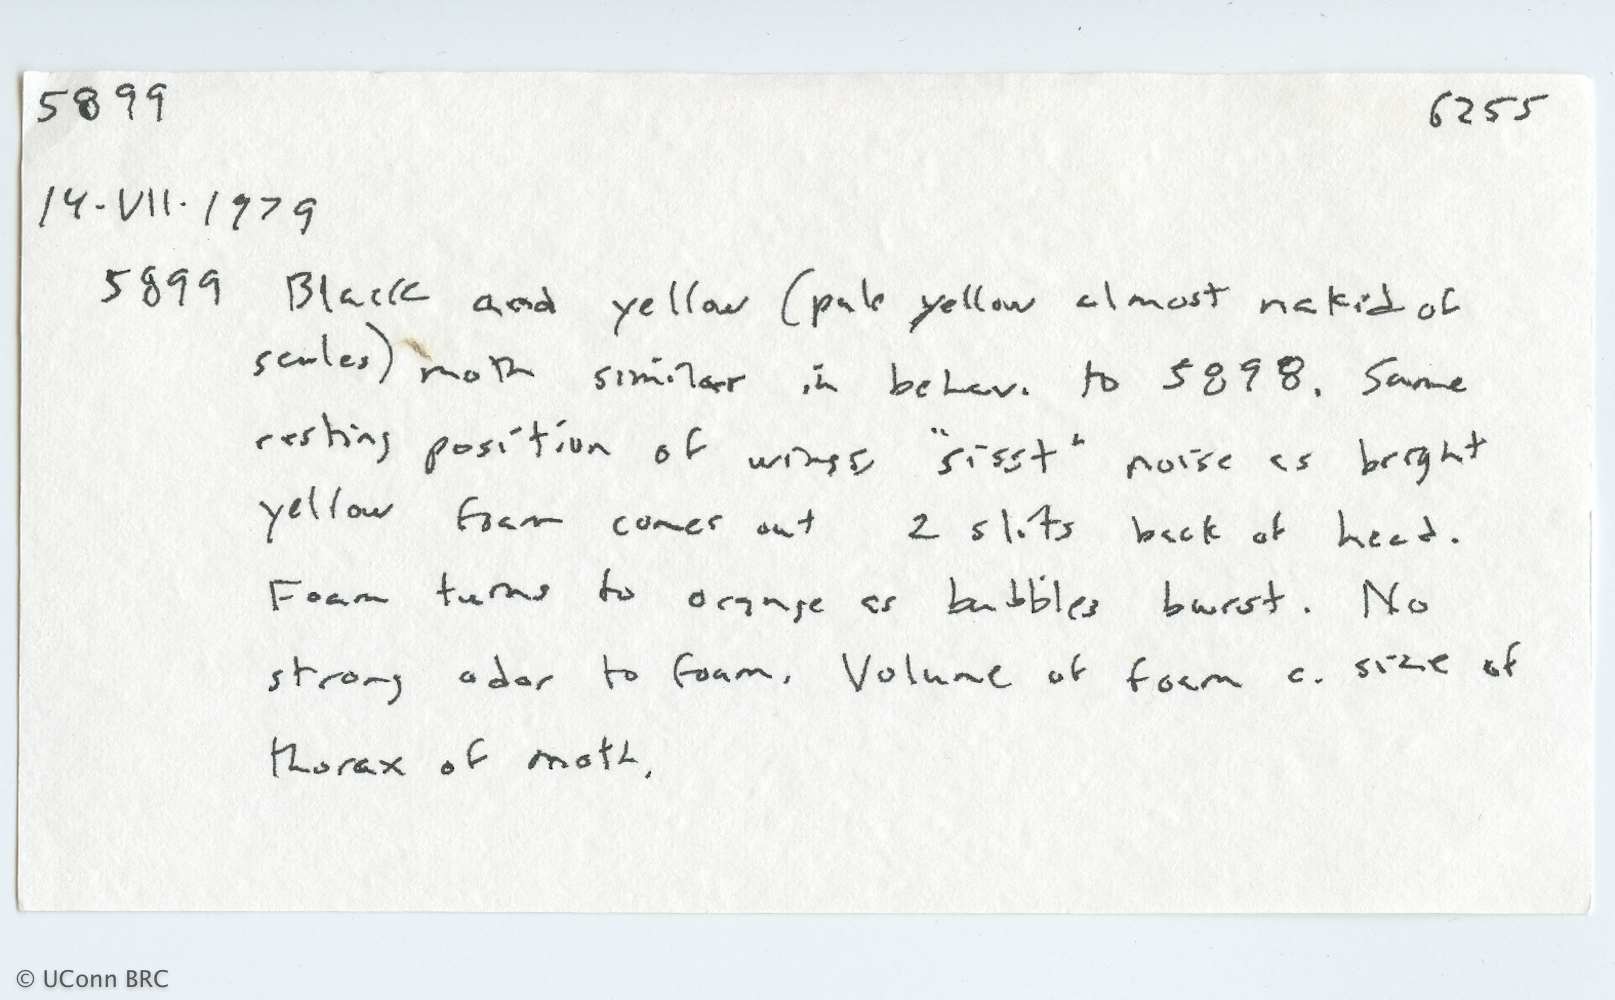 5899 6255
14-VII-1979
5899 Black and yellow (pale yellow almost nakid of
scales) moth similar in behav. to 5898. Same
resting position of wings "sisst" noise as bright
yellow foam comes out 2 slits back of head.
Foam turns to orange as bubbles burst. No
strong odor to foam. Volume of foam c. size of
thorax of moth.
© UConn BRC